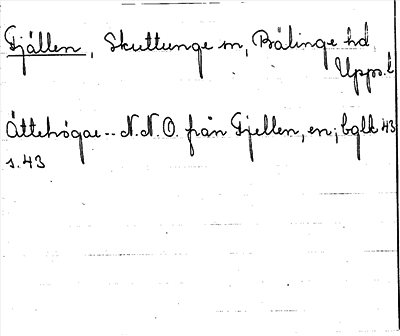 Gjällen, Skuttunge sn, Bälinge hd
Upps. l
Ättehögar -- N.N.O. från Gjellen, en; bglb 43
s. 43